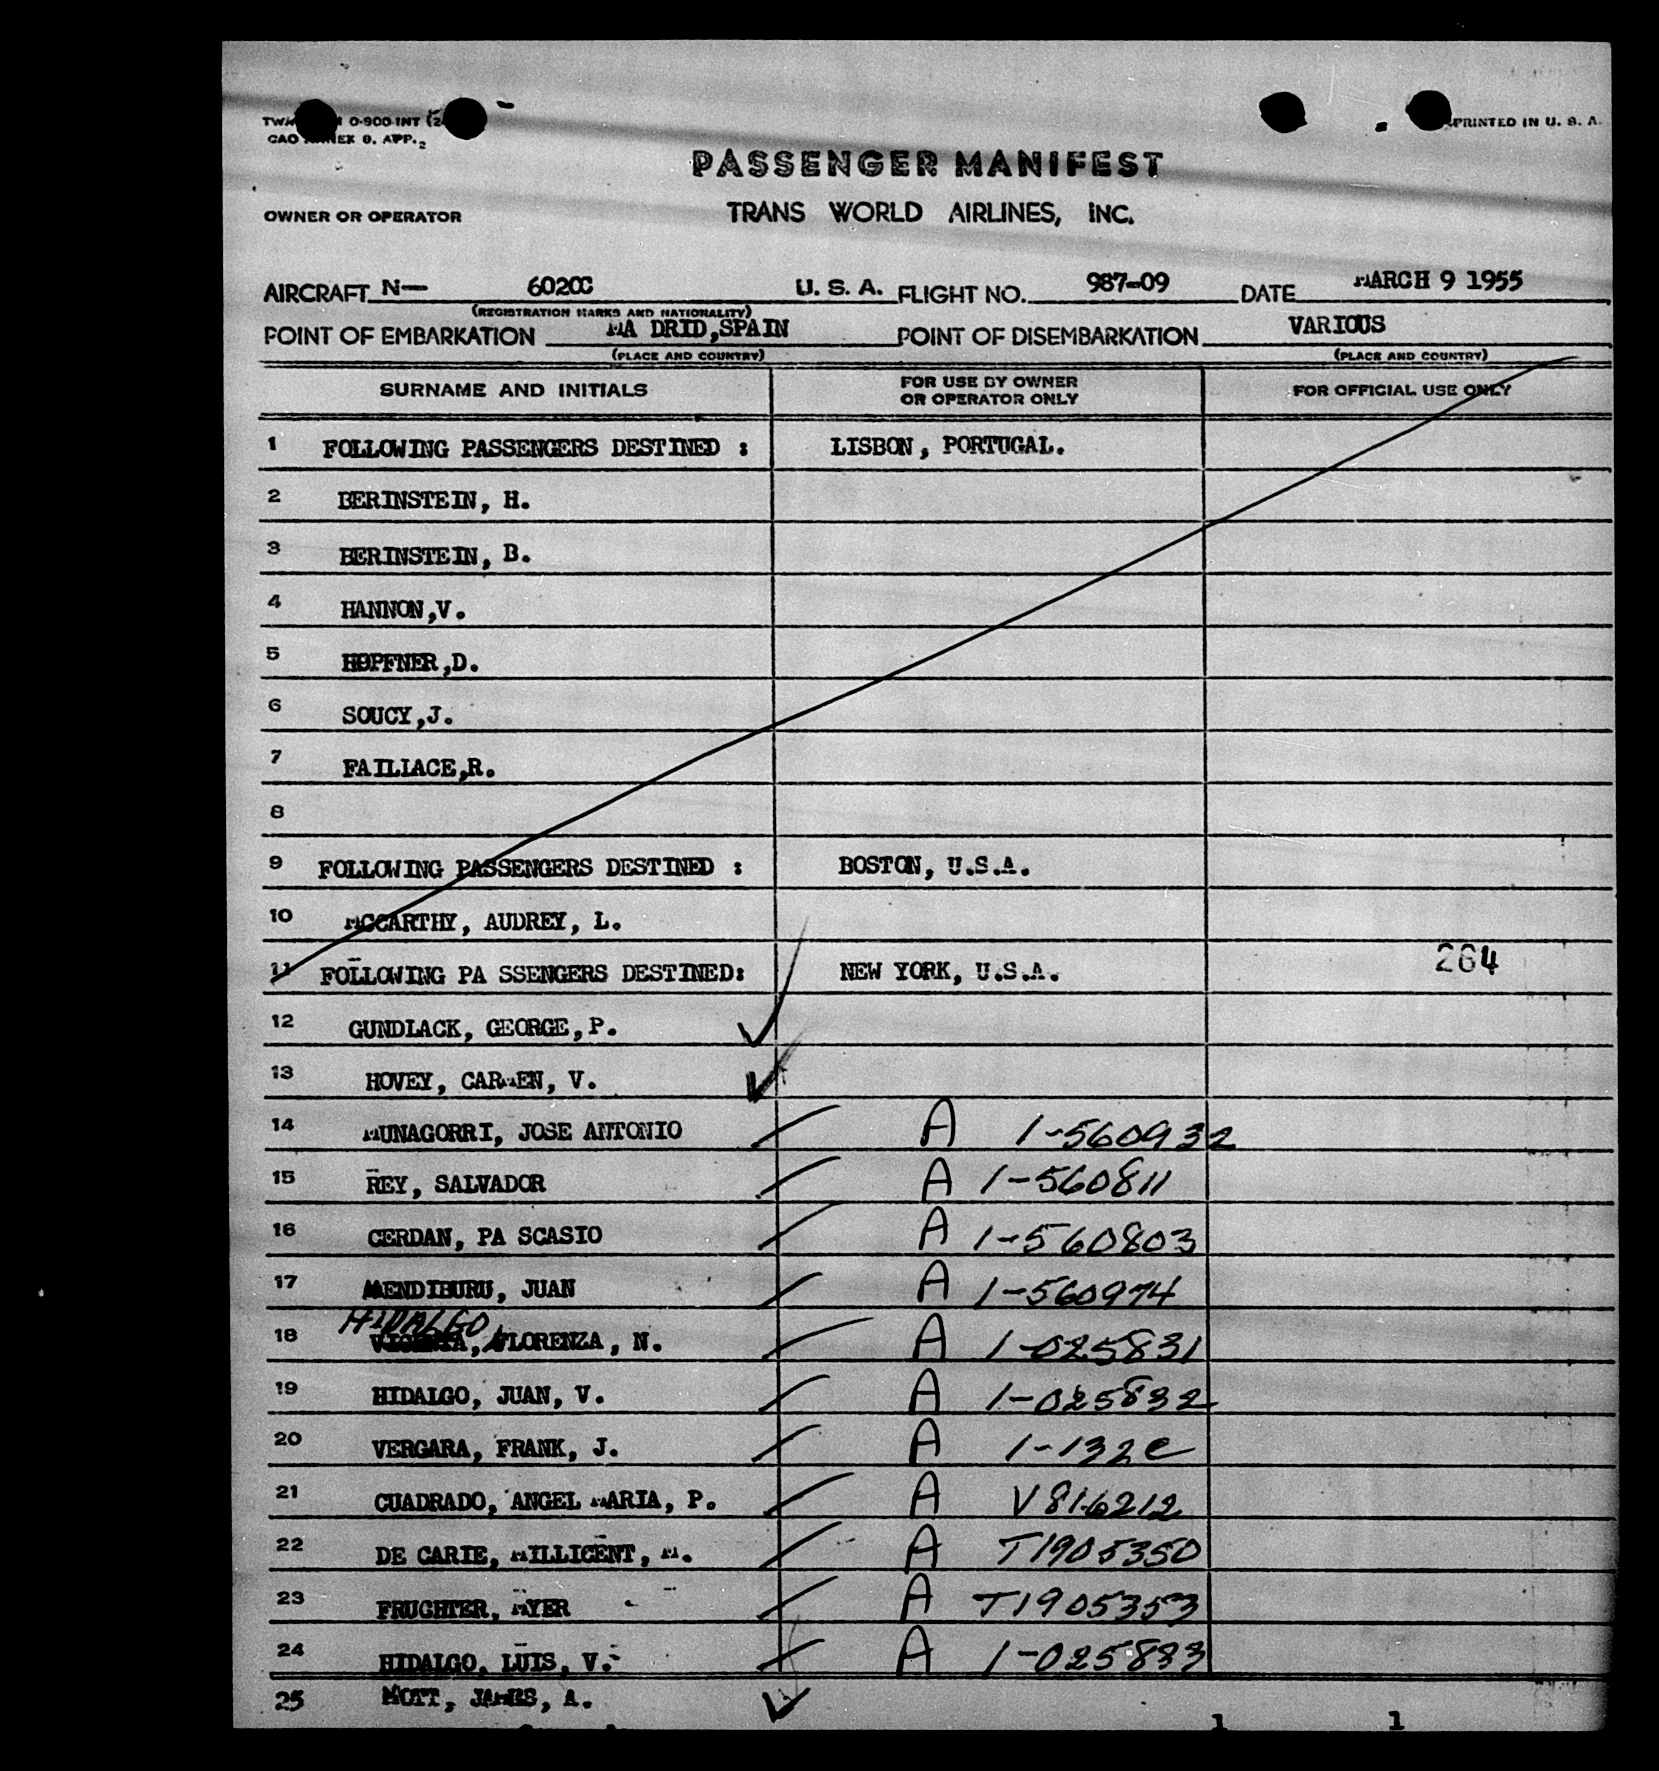 0-900-INT
PRINTED IN U. S. A.
APP. 2
PASSENGER MANIFEST
OWNER OR OPERATOR TRANS WORLD AIRLINES, INC.
AIRCRAFT N— 6020C U. S. A. FLIGHT NO. 987-09 DATE MARCH 9 1955
(REGISTRATION MARKS AND NATIONALITY)
POINT OF EMBARKATION MA DRID,SPAIN POINT OF DISEMBARKATION VARIOUS
(PLACE AND COUNTRY) (PLACE AND COUNTRY)
SURNAME AND INITIALS FOR USE BY OWNER OR OPERATOR ONLY FOR OFFICIAL USE ONLY
1 FOLLOWING PASSENGERS DESTINED : LISBON, PORTUGAL.
2 BERINSTEIN, H.
3 BERINSTEIN, B.
4 HANNON,V.
5 HOPFNER,D.
6 SOUCY,J.
7 FAILIACE,R.
8
9 FOLLOWING PASSENGERS DESTINED : BOSTON, U.S.A.
10 MCCARTHY, AUDREY, L.
11 FOLLOWING PA SSENGERS DESTINED: NEW YORK, U.S.A. 264
12 GUNDLACK, GEORGE,P.
13 HOVEY, CARMEN, V.
14 MUNAGORRI, JOSE ANTONIO A 1-560932
15 REY, SALVADOR A 1-560811
16 CERDAN, PA SCASIO A 1-560803
17 MENDIBURU, JUAN A 1-560974
HIDALGO
18 FLORENZA, N. A 1-025831
19 HIDALGO, JUAN, V. A 1-025832
20 VERGARA, FRANK, J. A 1-132
21 CUADRADO, ANGEL MARIA, P. A V816212
22 DE CARIE, MILLICENT, M. A T1905350
23 FRUGHTER, MYER A T1905353
24 HIDALGO, LUIS, V. A 1-025833
25 MOTT, JAMES, A.
1 1